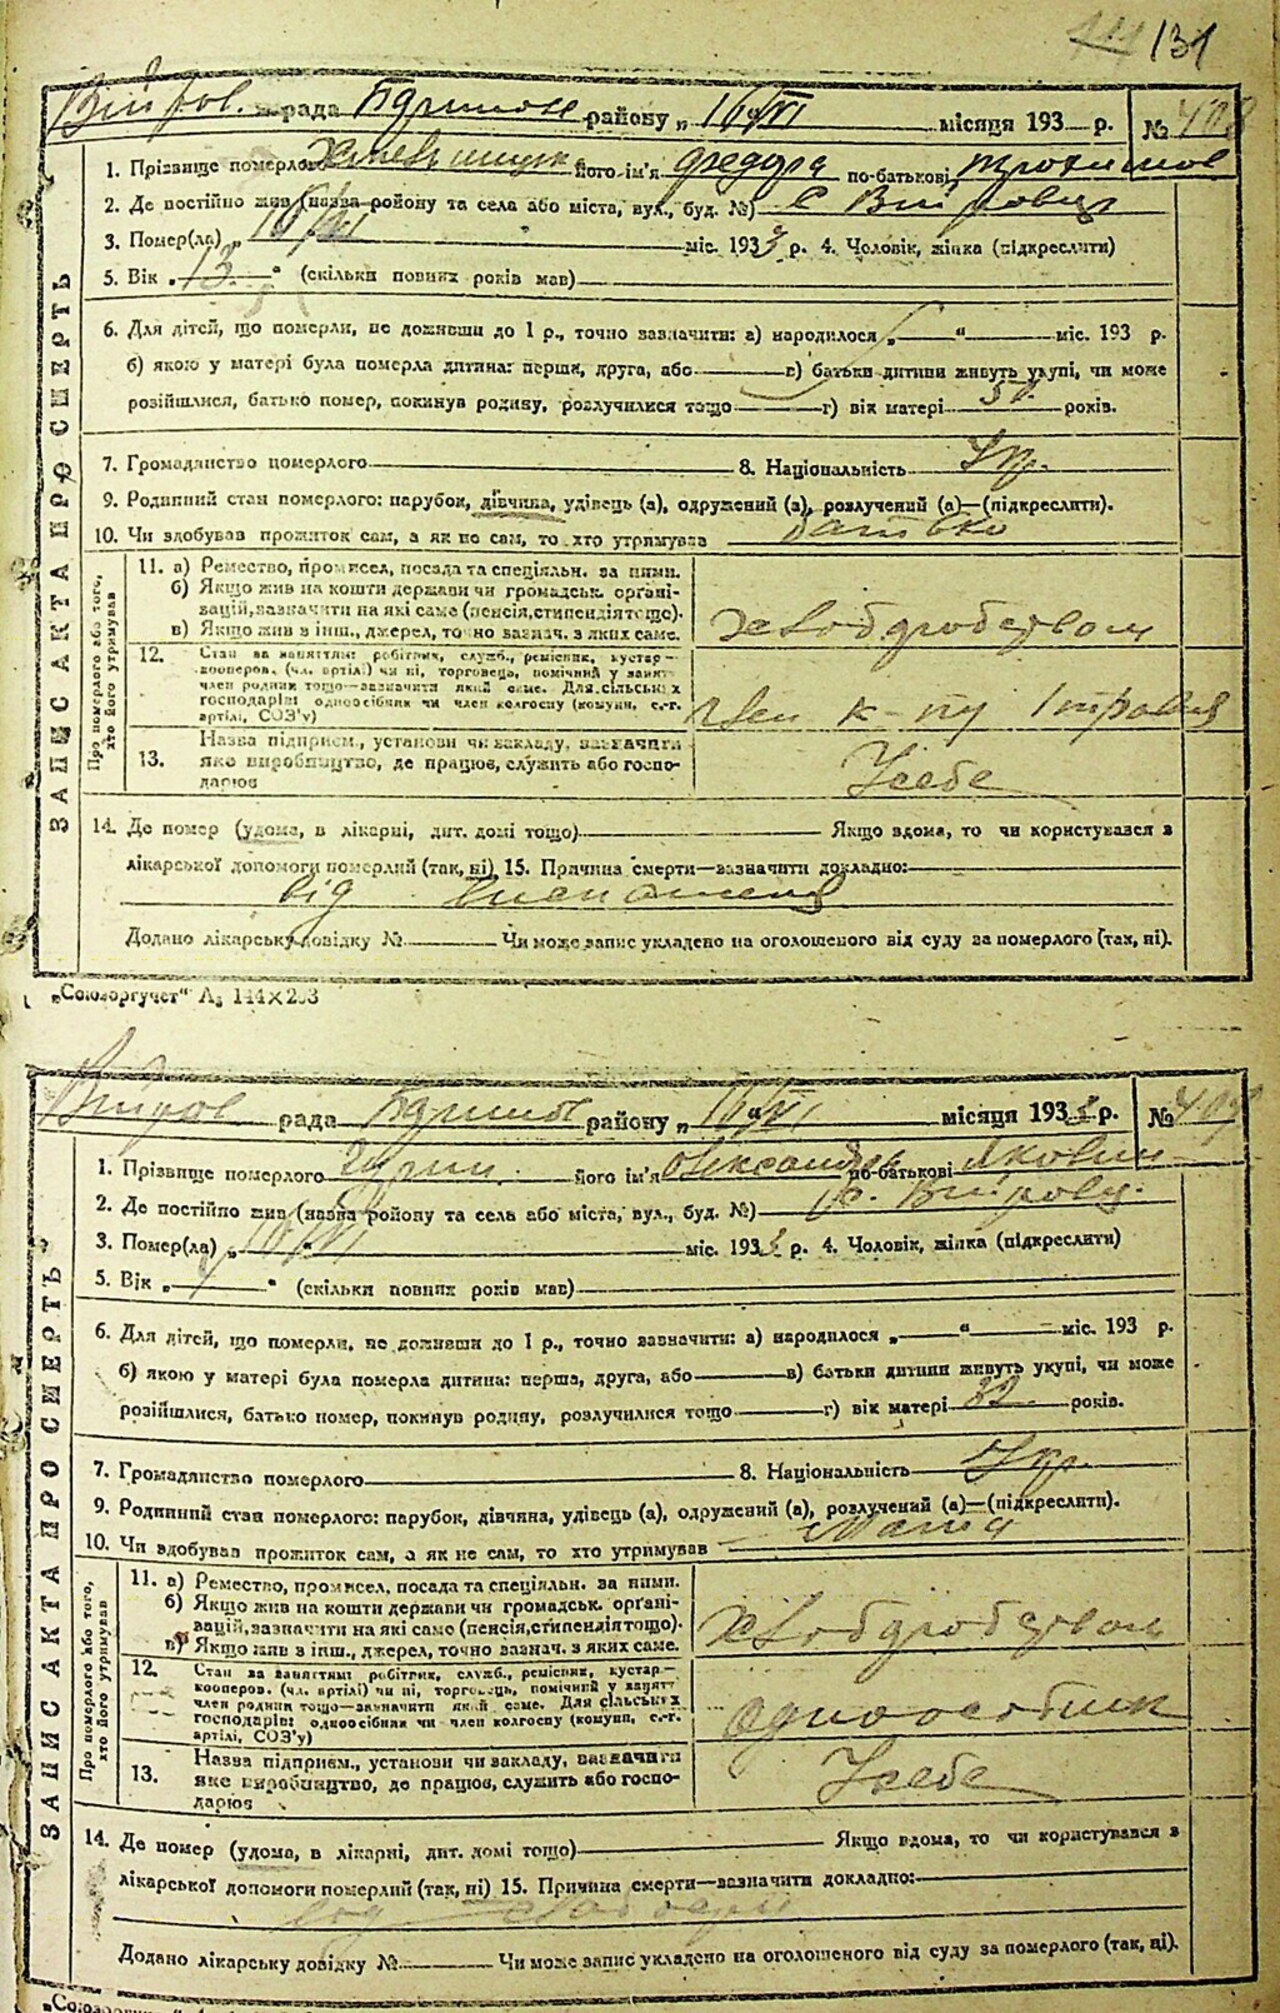 131
рада району „16/VI місяця 193 р. №
1. Прізвище померлого його ім'я Федора по-батькові
2. Де постійно жив (назва району та села або міста, вул., буд. №) с
3. Помер(ла) „16/VI міс. 1933 р. 4. Чоловік, жінка (підкреслити)
5. Вік „13“ (скільки повних років мав)
6. Для дітей, що померли, не доживши до 1 р., точно зазначити: а) народилося „ “ міс. 193 р.
б) якою у матері була померла дитина: перша, друга, або в) батьки дитини живуть укупі, чи може
розійшлися, батько помер, покинув родину, розлучилися тощо г) вік матері років.
7. Громадянство померлого 8. Національність Укр.
9. Родинний стан померлого: парубок, дівчина, удівець (а), одружений (а), розлучений (а)—(підкреслити).
10. Чи здобував прожиток сам, а як не сам, то хто утримував батько
ЗАПИС АКТА ПРО СМЕРТЬ
Про померлого або того, хто його утримував
11. а) Ремество, промисел, посада та спеціяльн. за ними.
б) Якщо жив на кошти держави чи громадськ. органі-
зацій, зазначити на які саме (пенсія, стипендія тощо).
в) Якщо жив з інш., джерел, точно зазнач. з яких саме.
хліборобством
12. Стан за заняттям: робітник, служб., ремісник, кустар—
кооперов. (чл. артілі) чи ні, торговець, помічний у занят.
член родини тощо—зазначити який саме. Для сільських
господарів: одноосібник чи член колгоспу (комуни, с.-г.
артілі, СОЗ'у)
член к-пу
13. Назва підприєм., установи чи закладу, зазначити
яке виробництво, де працює, служить або госпо-
дарює
У себе
14. Де помер (удома, в лікарні, дит. домі тощо) Якщо вдома, то чи користувався з
лікарської допомоги померлий (так, ні) 15. Причина смерти—зазначити докладно:
від
Додано лікарську довідку № Чи може запис укладено на оголошеного від суду за померлого (так, ні).
„Союзоргучет“ А₅ 144×203
рада району „16/VI місяця 1933 р. № 409
1. Прізвище померлого його ім'я Олександр по-батькові Яковин
2. Де постійно жив (назва району та села або міста, вул., буд. №) с.
3. Помер(ла) „16/VI міс. 1933 р. 4. Чоловік, жінка (підкреслити)
5. Вік „ “ (скільки повних років мав)
6. Для дітей, що померли, не доживши до 1 р., точно зазначити: а) народилося „ “ міс. 193 р.
б) якою у матері була померла дитина: перша, друга, або в) батьки дитини живуть укупі, чи може
розійшлися, батько помер, покинув родину, розлучилися тощо г) вік матері 32 років.
7. Громадянство померлого 8. Національність Укр.
9. Родинний стан померлого: парубок, дівчина, удівець (а), одружений (а), розлучений (а)—(підкреслити).
10. Чи здобував прожиток сам, а як не сам, то хто утримував мати
ЗАПИС АКТА ПРО СМЕРТЬ
Про померлого або того, хто його утримував
11. а) Ремество, промисел, посада та спеціяльн. за ними.
б) Якщо жив на кошти держави чи громадськ. органі-
зацій, зазначити на які саме (пенсія, стипендія тощо).
в) Якщо жив з інш., джерел, точно зазнач. з яких саме.
хліборобством
12. Стан за заняттям: робітник, служб., ремісник, кустар—
кооперов. (чл. артілі) чи ні, торговець, помічний у занят.
член родини тощо—зазначити який саме. Для сільських
господарів: одноосібник чи член колгоспу (комуни, с.-г.
артілі, СОЗ'у)
одноосібник
13. Назва підприєм., установи чи закладу, зазначити
яке виробництво, де працює, служить або госпо-
дарює
У себе
14. Де помер (удома, в лікарні, дит. домі тощо) Якщо вдома, то чи користувався з
лікарської допомоги померлий (так, ні) 15. Причина смерти—зазначити докладно:
від
Додано лікарську довідку № Чи може запис укладено на оголошеного від суду за померлого (так, ні).